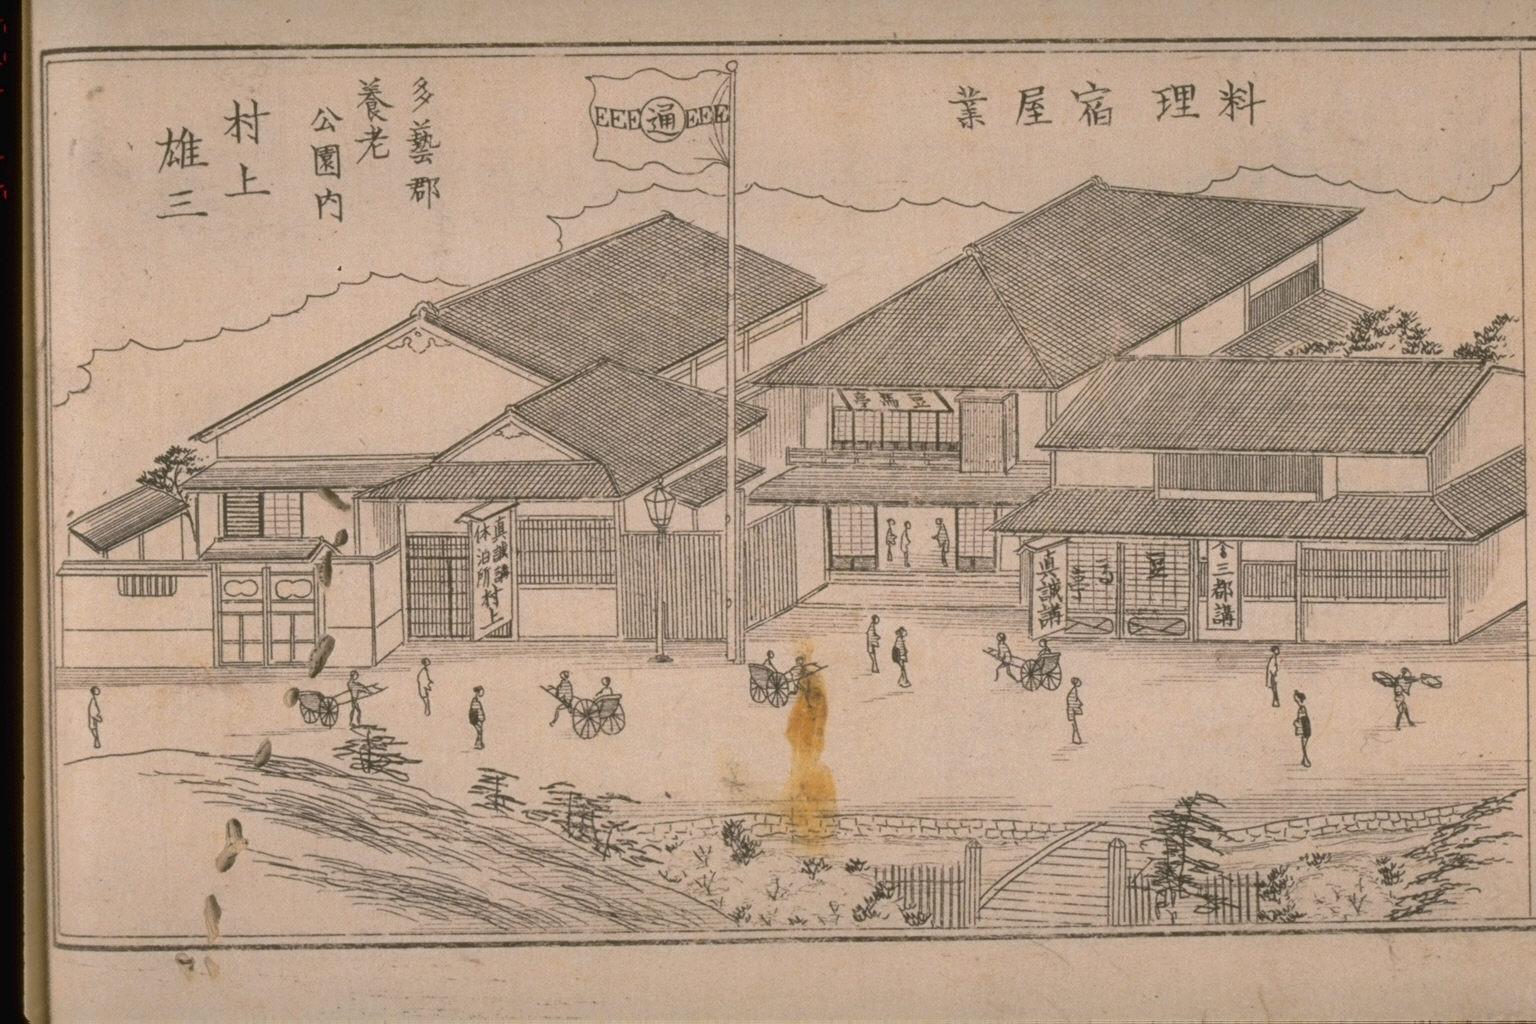 料理宿屋業
多藝郡
養老
公園内
村上
雄三
EEE通EEE
豆馬亭
真誠講
休泊所村上
真誠講
三都講
豆